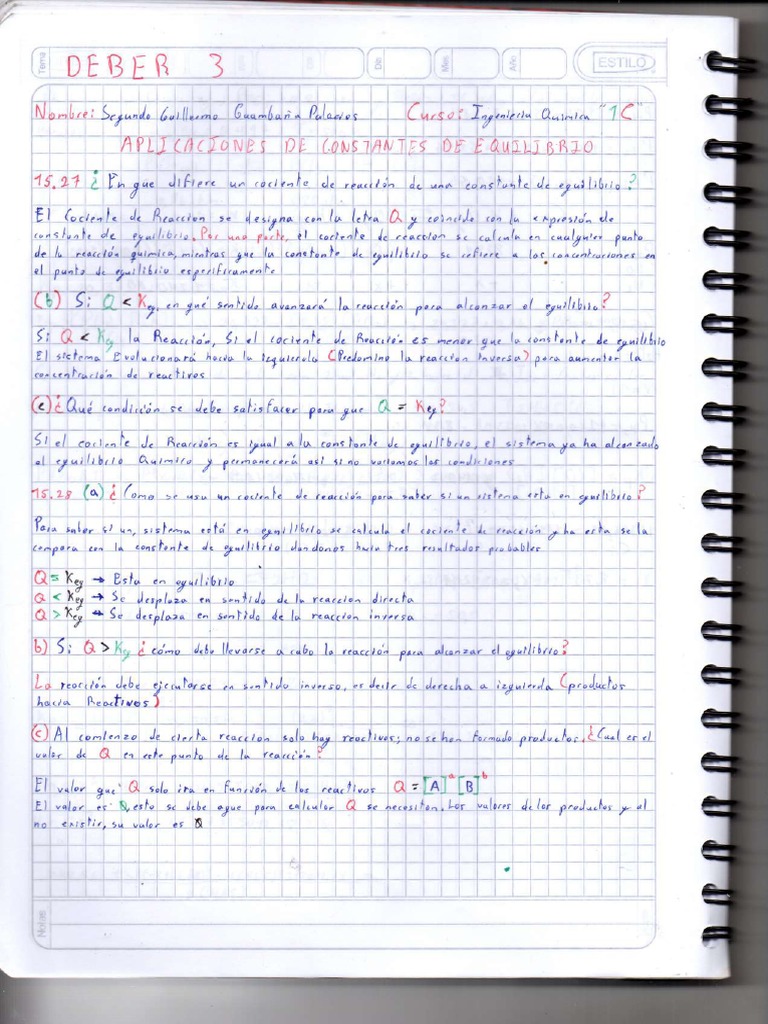 Tema
DEBER 3
Día
Mes
Año
ESTILO
Nombre: Segundo Guillermo Guambaña Palacios Curso: Ingenieria Quimica "1C"
APLICACIONES DE CONSTANTES DE EQUILIBRIO
15.27 ¿En que difiere un cociente de reacción de una constante de equilibrio?
El Cociente de Reaccion se designa con la letra Q y coincide con la expresión de
constante de equilibrio. Por una parte, el cociente de reaccion se calcula en cualquier punto
de la reacción quimica, mientras que la constante de equilibrio se refiere a las concentraciones en
el punto de equilibrio especificamente
(b) Si Q < Keq, en qué sentido avanzará la reacción para alcanzar el equilibrio?
Si Q < Keq la Reacción, Si el cociente de Reacción es menor que la constante de equilibrio
El sistema Evolucionará hacia la izquierda (Predomino la reaccion inversa) para aumentar la
concentración de reactivos
(c) ¿Qué condición se debe satisfacer para que Q = Keq?
Si el cociente de Reacción es igual a la constante de equilibrio, el sistema ya ha alcanzado
el equilibrio Quimico y permanecerá asi si no variamos las condiciones
15.28 (a) ¿Como se usa un cociente de reacción para saber si un sistema esta en equilibrio?
Para saber si un, sistema está en equilibrio se calcula el cociente de reacción y ha esta se la
compara con la constante de equilibrio dandonos hacia tres resultados probables
Q = Keq → Esta en equilibrio
Q < Keq → Se desplaza en sentido de la reaccion directa
Q > Keq → Se desplaza en sentido de la reaccion inversa
b) Si Q > Keq ¿cómo debe llevarse a cabo la reacción para alcanzar el equilibrio?
La reacción debe ejecutarse en sentido inverso, es decir de derecha a izquierda (productos
hacia Reactivos)
(c) Al comienzo de cierta reaccion solo hay reactivos; no se han formado productos. ¿Cual es el
valor de Q en este punto de la reacción?
El valor que Q solo ira en función de los reactivos Q = [A]^a [B]^b
El valor es 0, esto se debe aque para calcular Q se necesitan. Los valores de los productos y al
no existir, su valor es 0
Notas